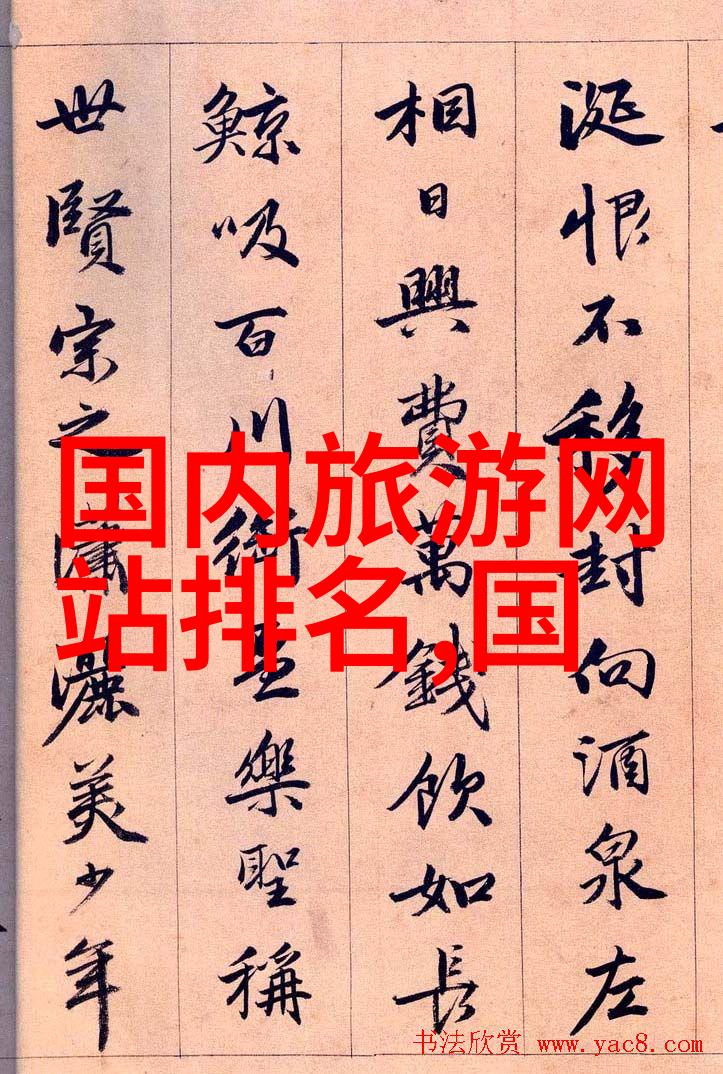 涎恨不移封向酒泉左
相日興費萬錢飲如長
鯨吸百川銜盃樂聖稱
世賢宗之瀟灑美少年
国内旅游网
站排名,国
书法欣赏 www.yac8.com